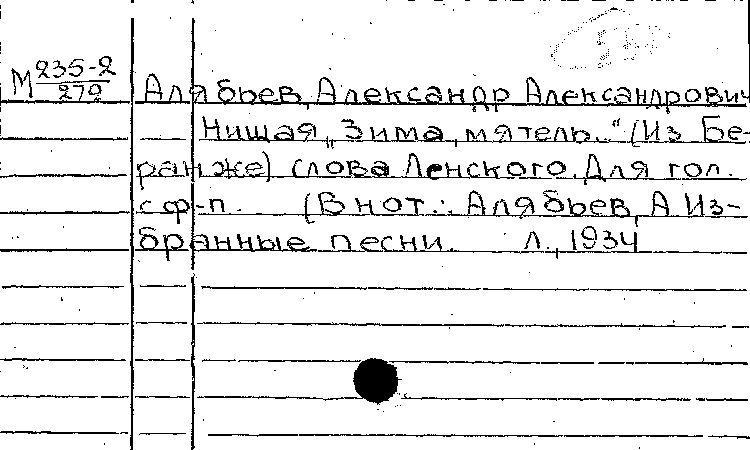 М 235-2
272
Алябьев, Александр Александрович
Нищая „Зима, мятель.." (Из Бе-
ранже) слова Ленского. Для гол.
с ф-п. (В нот.: Алябьев, А Из-
бранные песни. Л., 1934